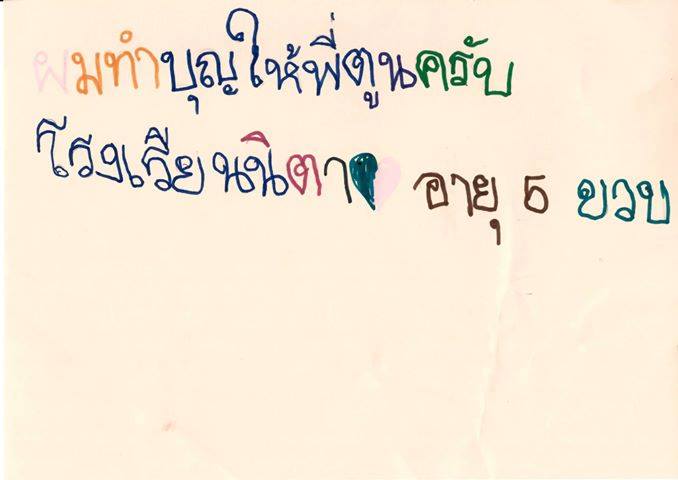 ผมทำบุญให้พี่ตูนครับ
โรงเรียนนิตา อายุ 5 ขวบ